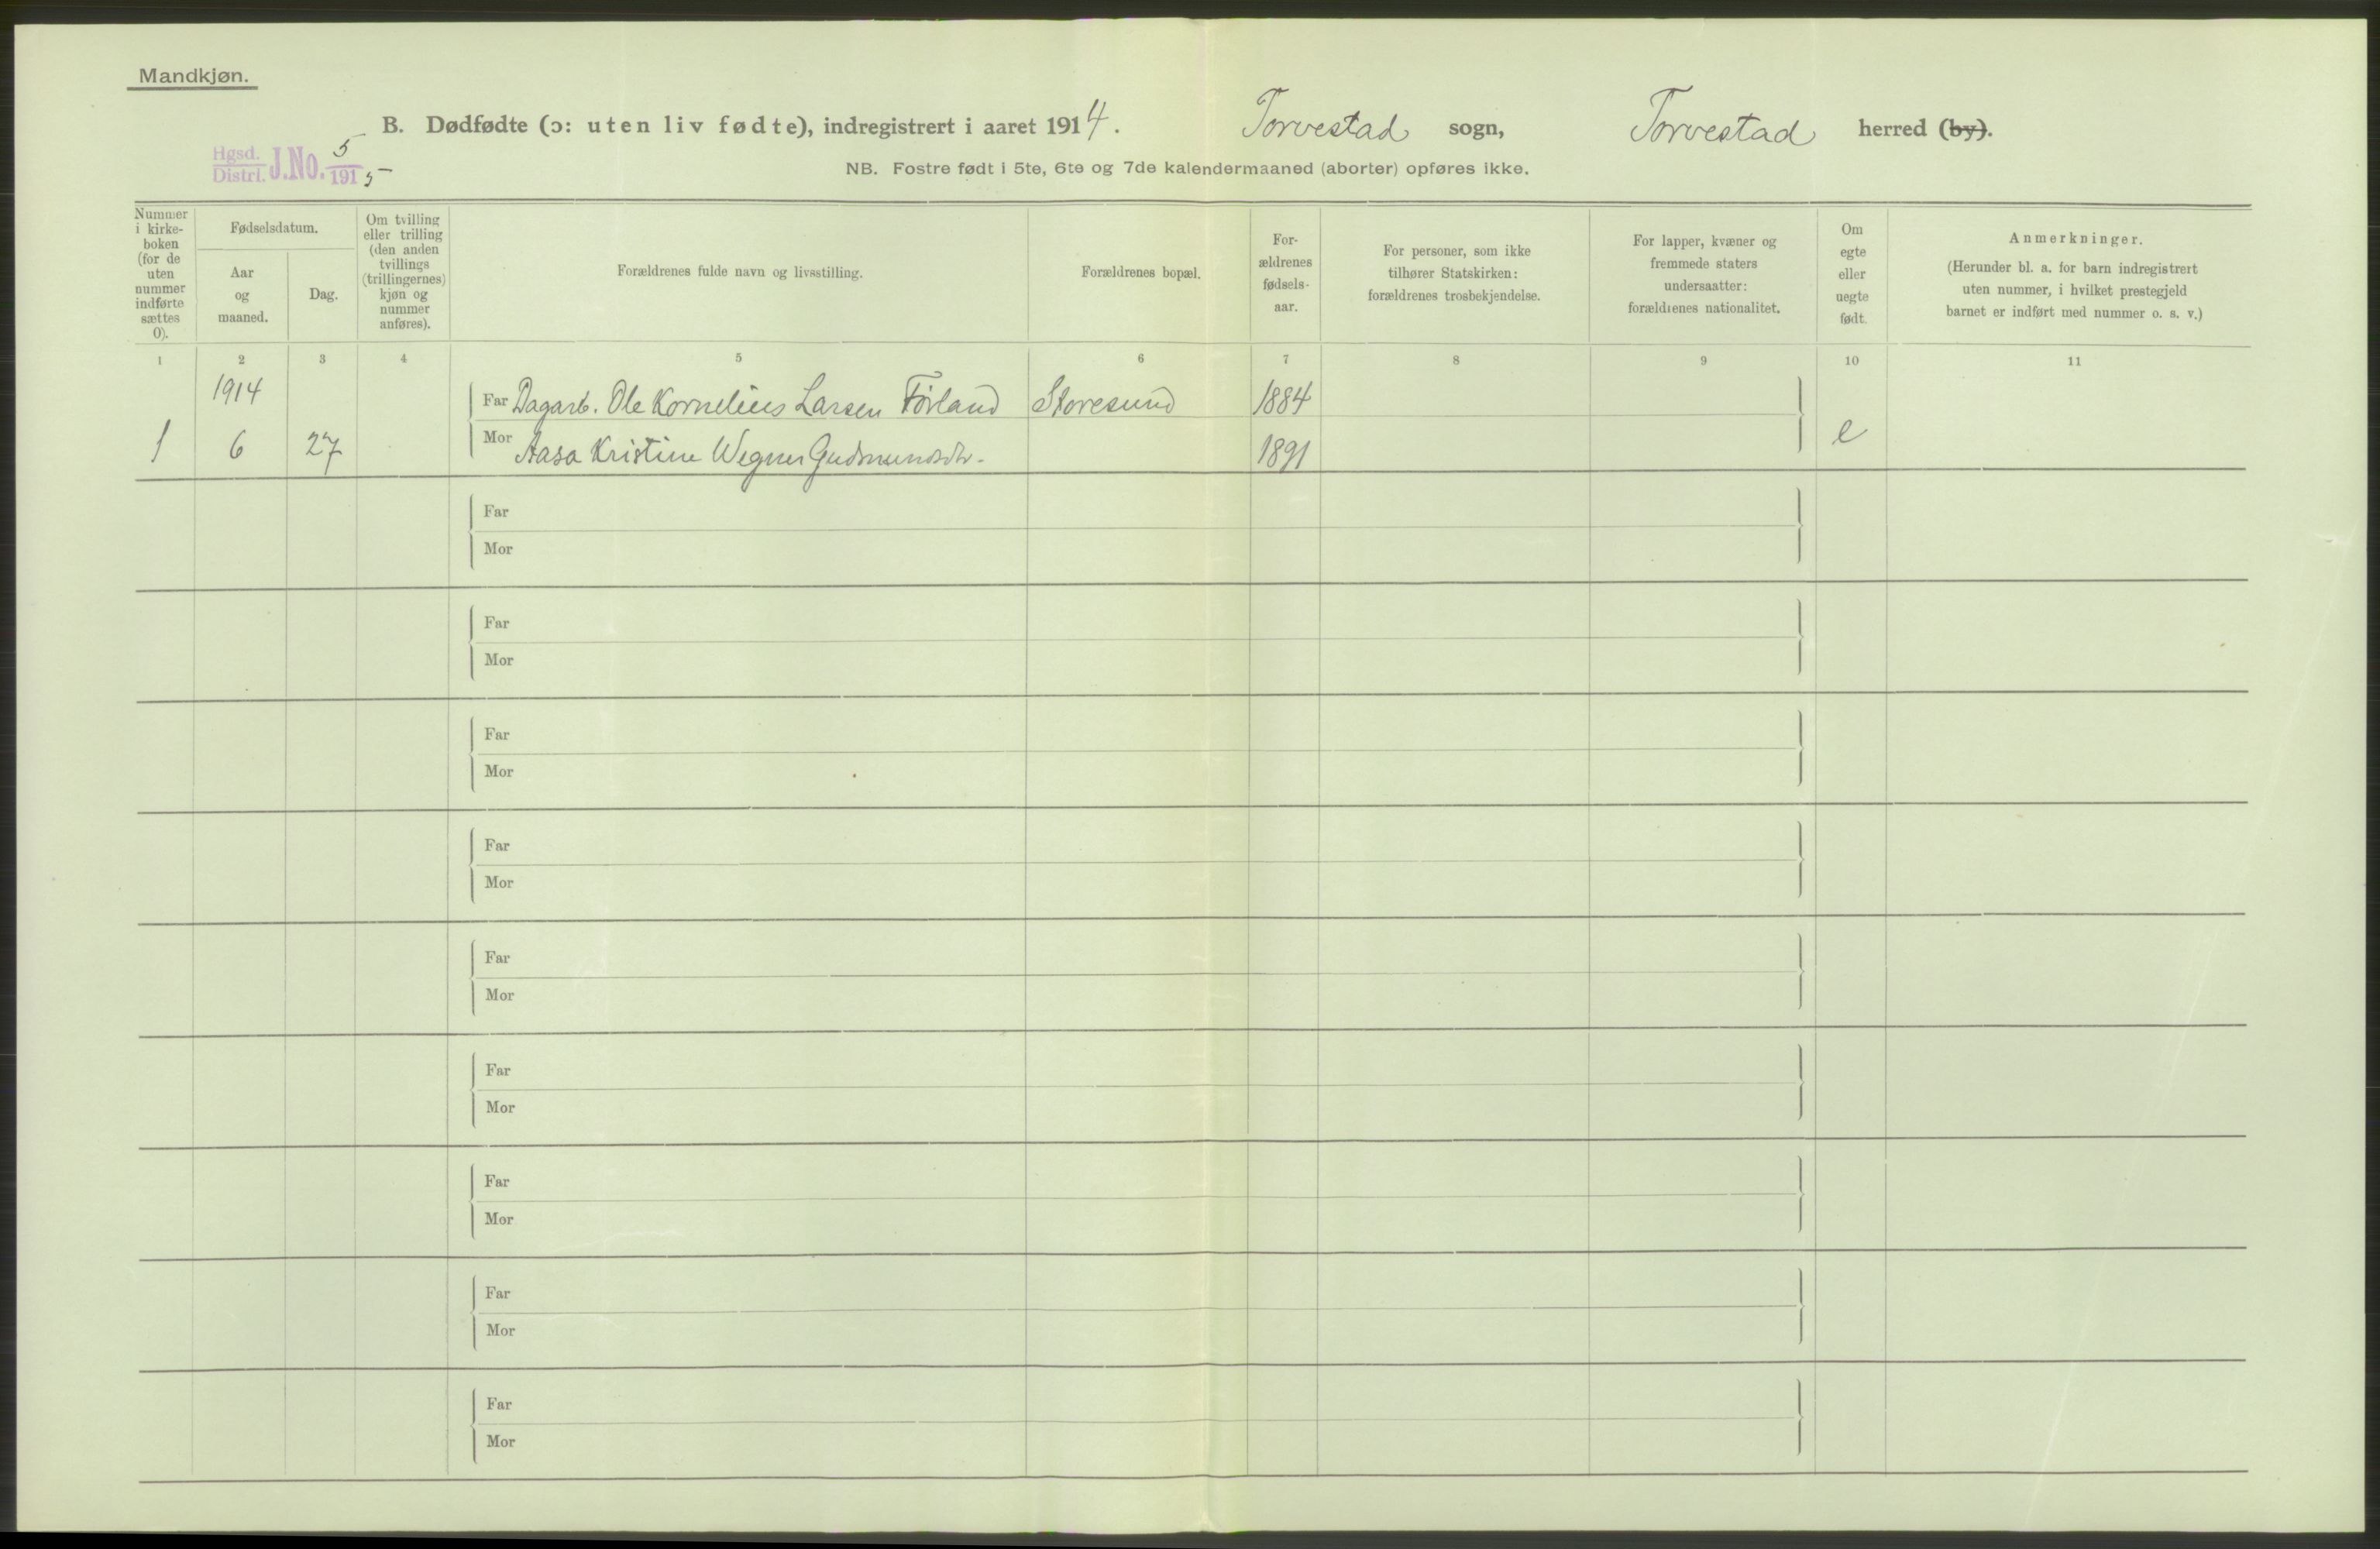 Mandkjøn.
B. Dødfødte (ɔ: uten liv fødte), indregistrert i aaret 1914. Torvestad sogn, Torvestad herred (by).
Hgsd. Distri. J.No. 5/1915
NB. Fostre født i 5te, 6te og 7de kalendermaaned (aborter) opføres ikke.
Nummer
i kirke-
boken
(for de
uten
nummer
indførte
sættes
0).
Fødselsdatum.
Aar
og
maaned.
Dag.
Om tvilling
eller trilling
(den anden
tvillings
(trillingernes)
kjøn og
nummer
anføres).
Forældrenes fulde navn og livsstilling.
Forældrenes bopæl.
For-
ældrenes
fødsels-
aar.
For personer, som ikke
tilhører Statskirken:
forældrenes trosbekjendelse.
For lapper, kvæner og
fremmede staters
undersaatter:
forældrenes nationalitet.
Om
egte
eller
uegte
født.
Anmerkninger.
(Herunder bl. a. for barn indregistrert
uten nummer, i hvilket prestegjeld
barnet er indført med nummer o. s. v.)
1 2 3 4 5 6 7 8 9 10 11
1914
Far Dagarb. Ole Kornelius Larsen Førland Storesund 1884
1 6 27 Mor Aasa Kristine Wegner Gudmundsdtr. 1891 e
Far
Mor
Far
Mor
Far
Mor
Far
Mor
Far
Mor
Far
Mor
Far
Mor
Far
Mor
Far
Mor